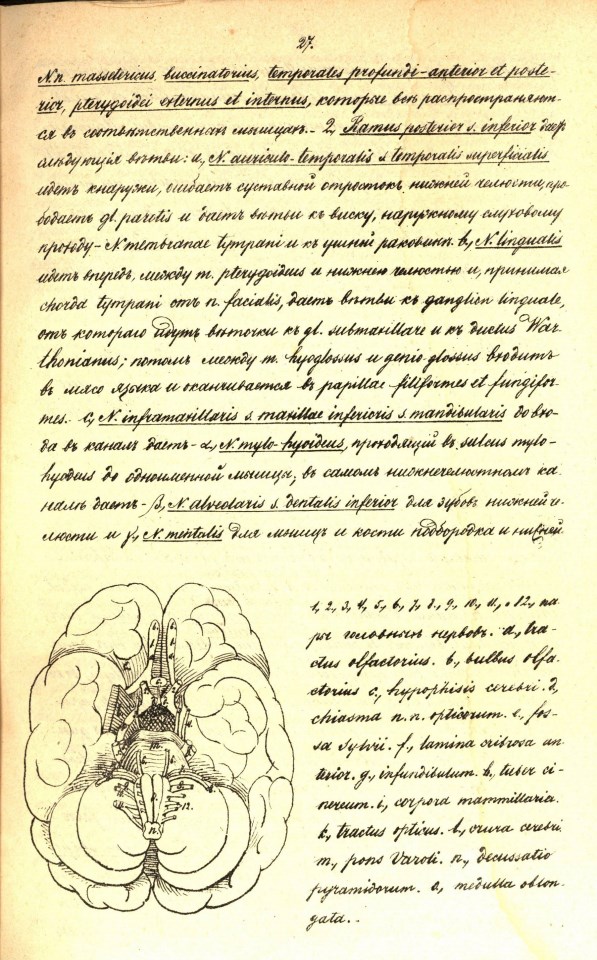 27.
N.n. massetericus, buccinatorius, temporales profundi-anterior et poste-
rior, pterygoidei externus et internus, которые всѣ распространяют-
ся въ соотвѣтственныхъ мышцахъ. - 2, Ramus posterior s. inferior даетъ
слѣдующія вѣтви: a, N. auriculo-temporalis s. temporalis superficialis
идетъ кнаружи, огибаетъ суставной отростокъ нижней челюсти, про-
бодаетъ gl. parotis и даетъ вѣтви къ виску, наружному слуховому
проходу - N membranae tympani и къ ушной раковинѣ. b, N. lingualis
идетъ впередъ, между m. pterygoideus и нижнею челюстью и, принимая
chorda tympani отъ n. facialis, даетъ вѣтви къ ganglion linguale,
отъ котораго идутъ вѣточки къ gl. submaxillare и къ ductus War-
thonianus; потомъ между m. hyoglossus и genio glossus входитъ
въ мясо языка и оканчивается въ papillae filiformes et fungifor-
mes. c, N. inframaxillaris s. maxillae inferioris s. mandibularis до вхо-
да въ каналъ даетъ - α, N. mylo-hyoideus, проходящій въ sulcus mylo-
hyoideus до одноименной мышцы; въ самомъ нижнечелюстномъ ка-
налѣ даетъ - β, N. alveolaris s. dentalis inferior для зубовъ нижней че-
люсти и γ, N. mentalis для мышцъ и кости подбородка и нижней
1, 2, 3, 4, 5, 6, 7, 8, 9, 10, 11, и 12, па-
ры головныхъ нервовъ. a, tra-
ctus olfactorius. b, bulbus olfa-
ctorius c, hypophisis cerebri. d,
chiasma n.n. opticorum. e, fos-
sa Sylvii. f, lamina cribrosa an-
terior. g, infundibulum. h, tuber ci-
nereum. i, corpora mammillaria.
k, tractus opticus. l, crura cerebri.
m, pons Varoli. n, decussatio
pyramidorum. o, medulla oblon-
gata.